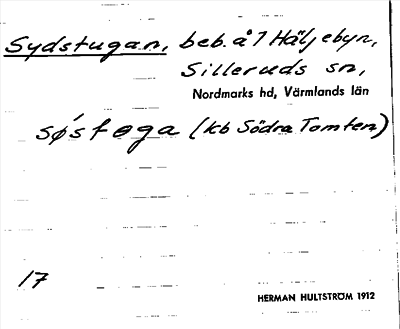 Sydstugan, beb. å 1 Häljebyn,
Silleruds sn,
Nordmarks hd, Värmlands län
sǿstøga (kb Södra Tomten)
17
HERMAN HULTSTRÖM 1912